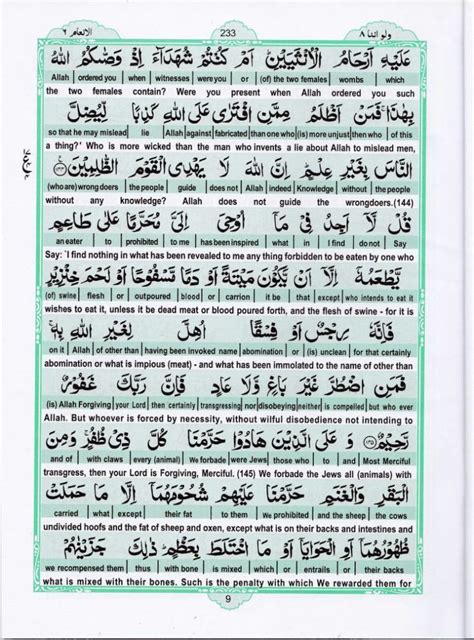 الانعام ٦ 233 ولو اننا ٨
عَلَيْهِ اَرْحَامُ الْاُنْثَيَيْنِ اَمْ كُنْتُمْ شُهَدَآءَ اِذْ وَصّٰىكُمُ اللّٰهُ
Allah | ordered you | when | witnesses | were you | or | (of) the two females | wombs | which
the two females contain? Were you present when Allah ordered you such
بِهٰذَا ۚ فَمَنْ اَظْلَمُ مِمَّنِ افْتَرٰى عَلَى اللّٰهِ كَذِبًا لِّيُضِلَّ
so that he may mislead | lie | Allah | against | fabricated | than one who | (is) more unjust | then who | of this
a thing?' Who is more wicked than the man who invents a lie about Allah to mislead men,
النَّاسَ بِغَيْرِ عِلْمٍ ؕ اِنَّ اللّٰهَ لَا يَهْدِى الْقَوْمَ الظّٰلِمِيْنَ
(who are) wrong doers | the people | guide | does not | Allah | indeed | Knowledge | without | the people
without any knowledge? Allah does not guide the wrongdoers.(144)
قُلْ لَّاۤ اَجِدُ فِىْ مَاۤ اُوْحِىَ اِلَىَّ مُحَرَّمًا عَلٰى طَاعِمٍ
an eater | to | prohibited | to me | has been inspired | what | in | I find | do not | Say
Say: 'I find nothing in what has been revealed to me any thing forbidden to be eaten by one who
يَّطْعَمُهٗۤ اِلَّاۤ اَنْ يَّكُوْنَ مَيْتَةً اَوْ دَمًا مَّسْفُوْحًا اَوْ لَحْمَ خِنْزِيْرٍ
(of) swine | flesh | or | outpoured | blood | or | carrion | it be | that | except | who intends to eat it
wishes to eat it, unless it be dead meat or blood poured forth, and the flesh of swine - for it is
فَاِنَّهٗ رِجْسٌ اَوْ فِسْقًا اُهِلَّ لِغَيْرِ اللّٰهِ بِهٖ ۚ
on it | Allah | of other than | having been invoked name | abomination | or | (is) unclean | for that certainly
abomination or what is impious (meat) - and what has been immolated to the name of other than
فَمَنِ اضْطُرَّ غَيْرَ بَاغٍ وَّلَا عَادٍ فَاِنَّ رَبَّكَ غَفُوْرٌ
(is) Allah Forgiving | your Lord | then certainly | transgressing | nor | disobeying | neither | is compelled | but who ever
Allah. But whoever is forced by necessity, without wilful disobedience not intending to
رَّحِيْمٌ وَ عَلَى الَّذِيْنَ هَادُوْا حَرَّمْنَا كُلَّ ذِىْ ظُفُرٍ ۚ وَ مِنَ
and of | with claws | every (animal) | We forbade | were Jews | those who | to | and | Most Merciful
transgress, then your Lord is Forgiving, Merciful. (145) We forbade the Jews all (animals) with
الْبَقَرِ وَالْغَنَمِ حَرَّمْنَا عَلَيْهِمْ شُحُوْمَهُمَاۤ اِلَّا مَا حَمَلَتْ
carried | what | except | their fat | to them | We prohibited | and the sheep | the cows
undivided hoofs and the fat of sheep and oxen, except what is on their backs and intestines and
ظُهُوْرُهُمَاۤ اَوِ الْحَوَايَاۤ اَوْ مَا اخْتَلَطَ بِعَظْمٍ ؕ ذٰلِكَ جَزَيْنٰهُمْ
we recompensed them | thus | with bone | is mixed | which | or | entrails | or | their backs
what is mixed with their bones. Such is the penalty with which We rewarded them for
9